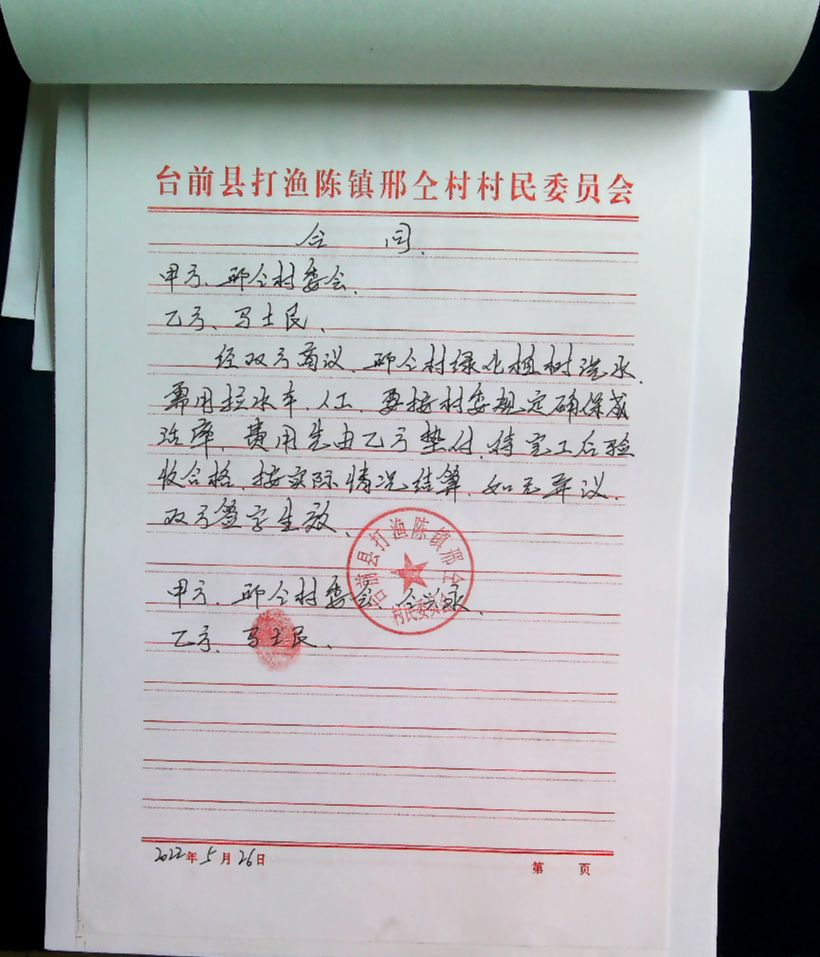 台前县打渔陈镇邢仝村村民委员会
合 同.
甲方、邢仝村委会.
乙方、马士民.
经双方商议.邢仝村绿化植树浇水.
需用拉水车、人工.要按村委规定确保成
活率.费用先由乙方垫付.待完工后验
收合格.按实际情况结算.如无异议.
双方签字生效.
台前县打渔陈镇邢仝村
村民委员会
甲方.邢仝村委会.
乙方.马士民.
2022年5月26日
第 页